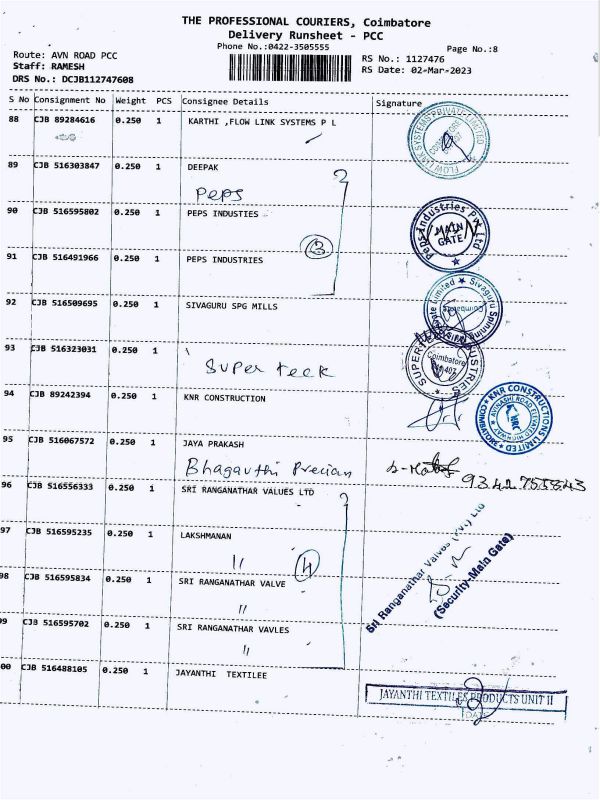 THE PROFESSIONAL COURIERS, Coimbatore
Delivery Runsheet - PCC
Phone No.:0422-3505555
Page No.:8
Route: AVN ROAD PCC
Staff: RAMESH
DRS No.: DCJB112747608
RS No.: 1127476
RS Date: 02-Mar-2023
S No Consignment No Weight PCS Consignee Details Signature
88 CJB 89284616 0.250 1 KARTHI ,FLOW LINK SYSTEMS P L
FLOW LINK SYSTEMS PRIVATE LIMITED
89 CJB 516303847 0.250 1 DEEPAK
Peps
90 CJB 516595802 0.250 1 PEPS INDUSTIES
Peps Industries Pvt Ltd
MAIN
GATE
3
91 CJB 516491966 0.250 1 PEPS INDUSTRIES
92 CJB 516509695 0.250 1 SIVAGURU SPG MILLS
Sivaguru Spinning
Limited
Coimbatore
93 CJB 516323031 0.250 1
Super teck
Coimbatore
94 CJB 89242394 0.250 1 KNR CONSTRUCTION
KNR CONSTRUCTIONS LIMITED
COIMBATORE
95 CJB 516067572 0.250 1 JAYA PRAKASH
Bhagavthi Precian
96 CJB 516556333 0.250 1 SRI RANGANATHAR VALUES LTD
97 CJB 516595235 0.250 1 LAKSHMANAN
"
4
98 CJB 516595834 0.250 1 SRI RANGANATHAR VALVE
"
Sri Ranganathar Valves (Pvt.) Ltd
(Security-Main Gate)
99 CJB 516595702 0.250 1 SRI RANGANATHAR VAVLES
"
00 CJB 516488105 0.250 1 JAYANTHI TEXTILEE
JAYANTHI TEXTILES PRODUCTS UNIT II
DATE